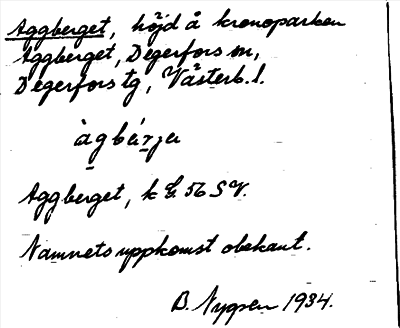 Aggberget, höjd å kronoparken
Aggberget, Degerfors sn,
Degerfors tg, Västerb. l.
àgbár̠jə
Aggberget, k G. 56 SV.
Namnets uppkomst obekant.
B. Nygren 1934.